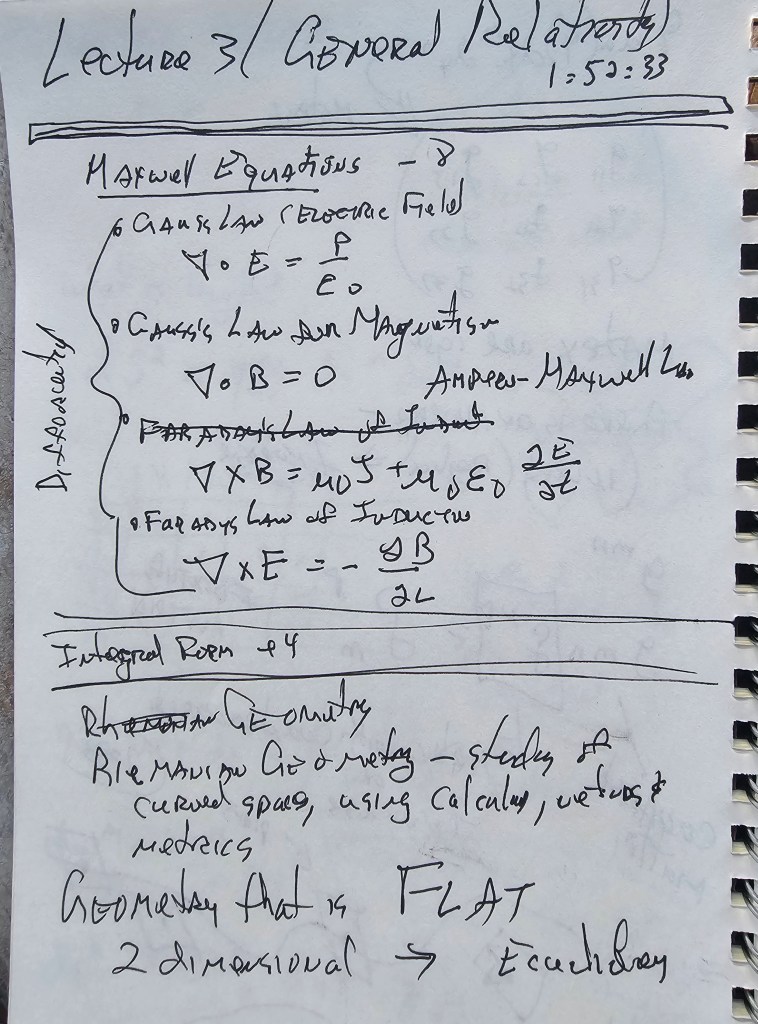 Lecture 3/ General Relativity
1:52:33
Maxwell Equations - 8
Gauss Law (Electric Field
∇ • E = ρ/ε0
Gauss's Law for Magnetism
∇ • B = 0
Ampere-Maxwell Law
Faraday's Law of Induct
∇ × B = μ0 J + μ0 ε0 ∂E/∂t
Faradys Law of Induction
∇ × E = - ∂B/∂t
Integral Form +4
Geometry
Riemanian Geometry - study of
curved spaces, using calculus, vectors &
metrics
Geometry that is FLAT
2 dimensional →